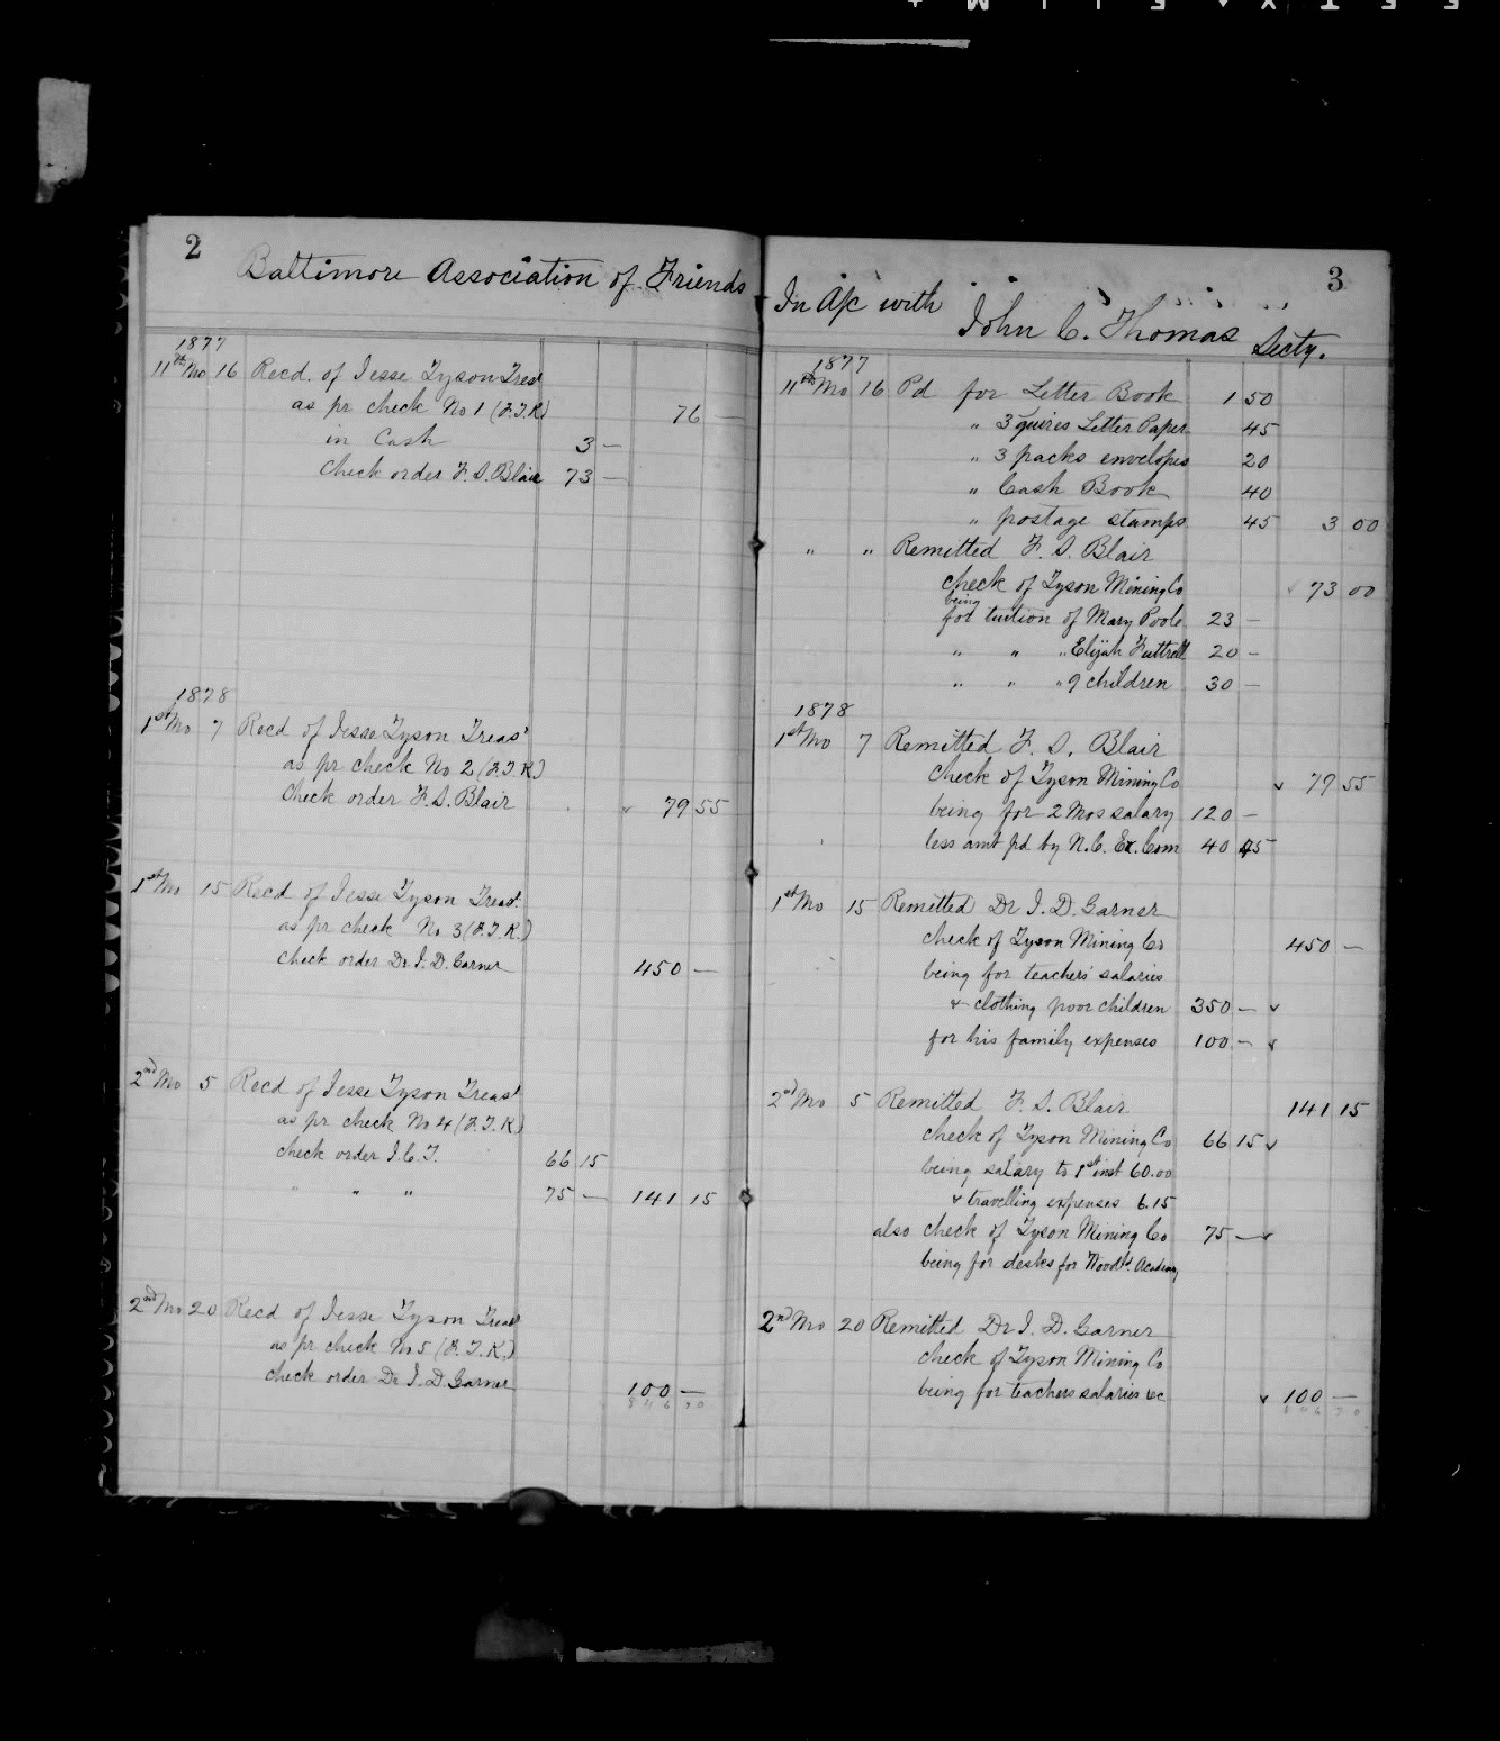 2
Baltimore Association of Friends
1877
11th Mo 16 Recd. of Jesse Tyson Treas
as pr check No 1 (F.T.K) 76 —
in Cash 3 —
Check order F. S. Blair 73 —
1878
1st Mo 7 Recd of Jesse Tyson Treas
as pr check No 2 (F.T.K)
Check order F. S. Blair 79 55
1st Mo 15 Recd of Jesse Tyson Treas.
as pr check No 3 (F.T.K.)
Check order Dr J. D. Garner 450 —
2nd Mo 5 Recd of Jesse Tyson Treas
as pr check No 4 (F.T.K)
check order J. C. T. 66 15
" " " 75 — 141 15
2nd Mo 20 Recd of Jesse Tyson Treas
as pr check No 5 (F.T.K.)
check order Dr J. D. Garner 100 —
846 70
3
In A/c with John C. Thomas Secty.
1877
11th Mo 16 Pd for Letter Book 1 50
" 3 quires Letter Paper 45
" 3 packs envelopes 20
" Cash Book 40
" postage stamps 45 3 00
" " Remitted F. S. Blair
check of Tyson Mining Co 73 00
being
for tuition of Mary Poole 23 —
" " " Elijah Futtrell 20 —
" " " 9 children 30 —
1878
1st Mo 7 Remitted F. S. Blair
Check of Tyson Mining Co 79 55
being for 2 Mos salary 120 —
less amt pd by N. C. Ex. Com 40 45
1st Mo 15 Remitted Dr J. D. Garner
check of Tyson Mining Co 450 —
being for teachers' salaries
& clothing poor children 350 —
for his family expenses 100 —
2nd Mo 5 Remitted F. S. Blair 141 15
check of Tyson Mining Co 66 15
being salary to 1st inst 60.00
& travelling expenses 6.15
also check of Tyson Mining Co 75 —
being for desks for Woodld. Academy
2nd Mo 20 Remitted Dr J. D. Garner
check of Tyson Mining Co
being for teachers salaries &c 100 —
846 70